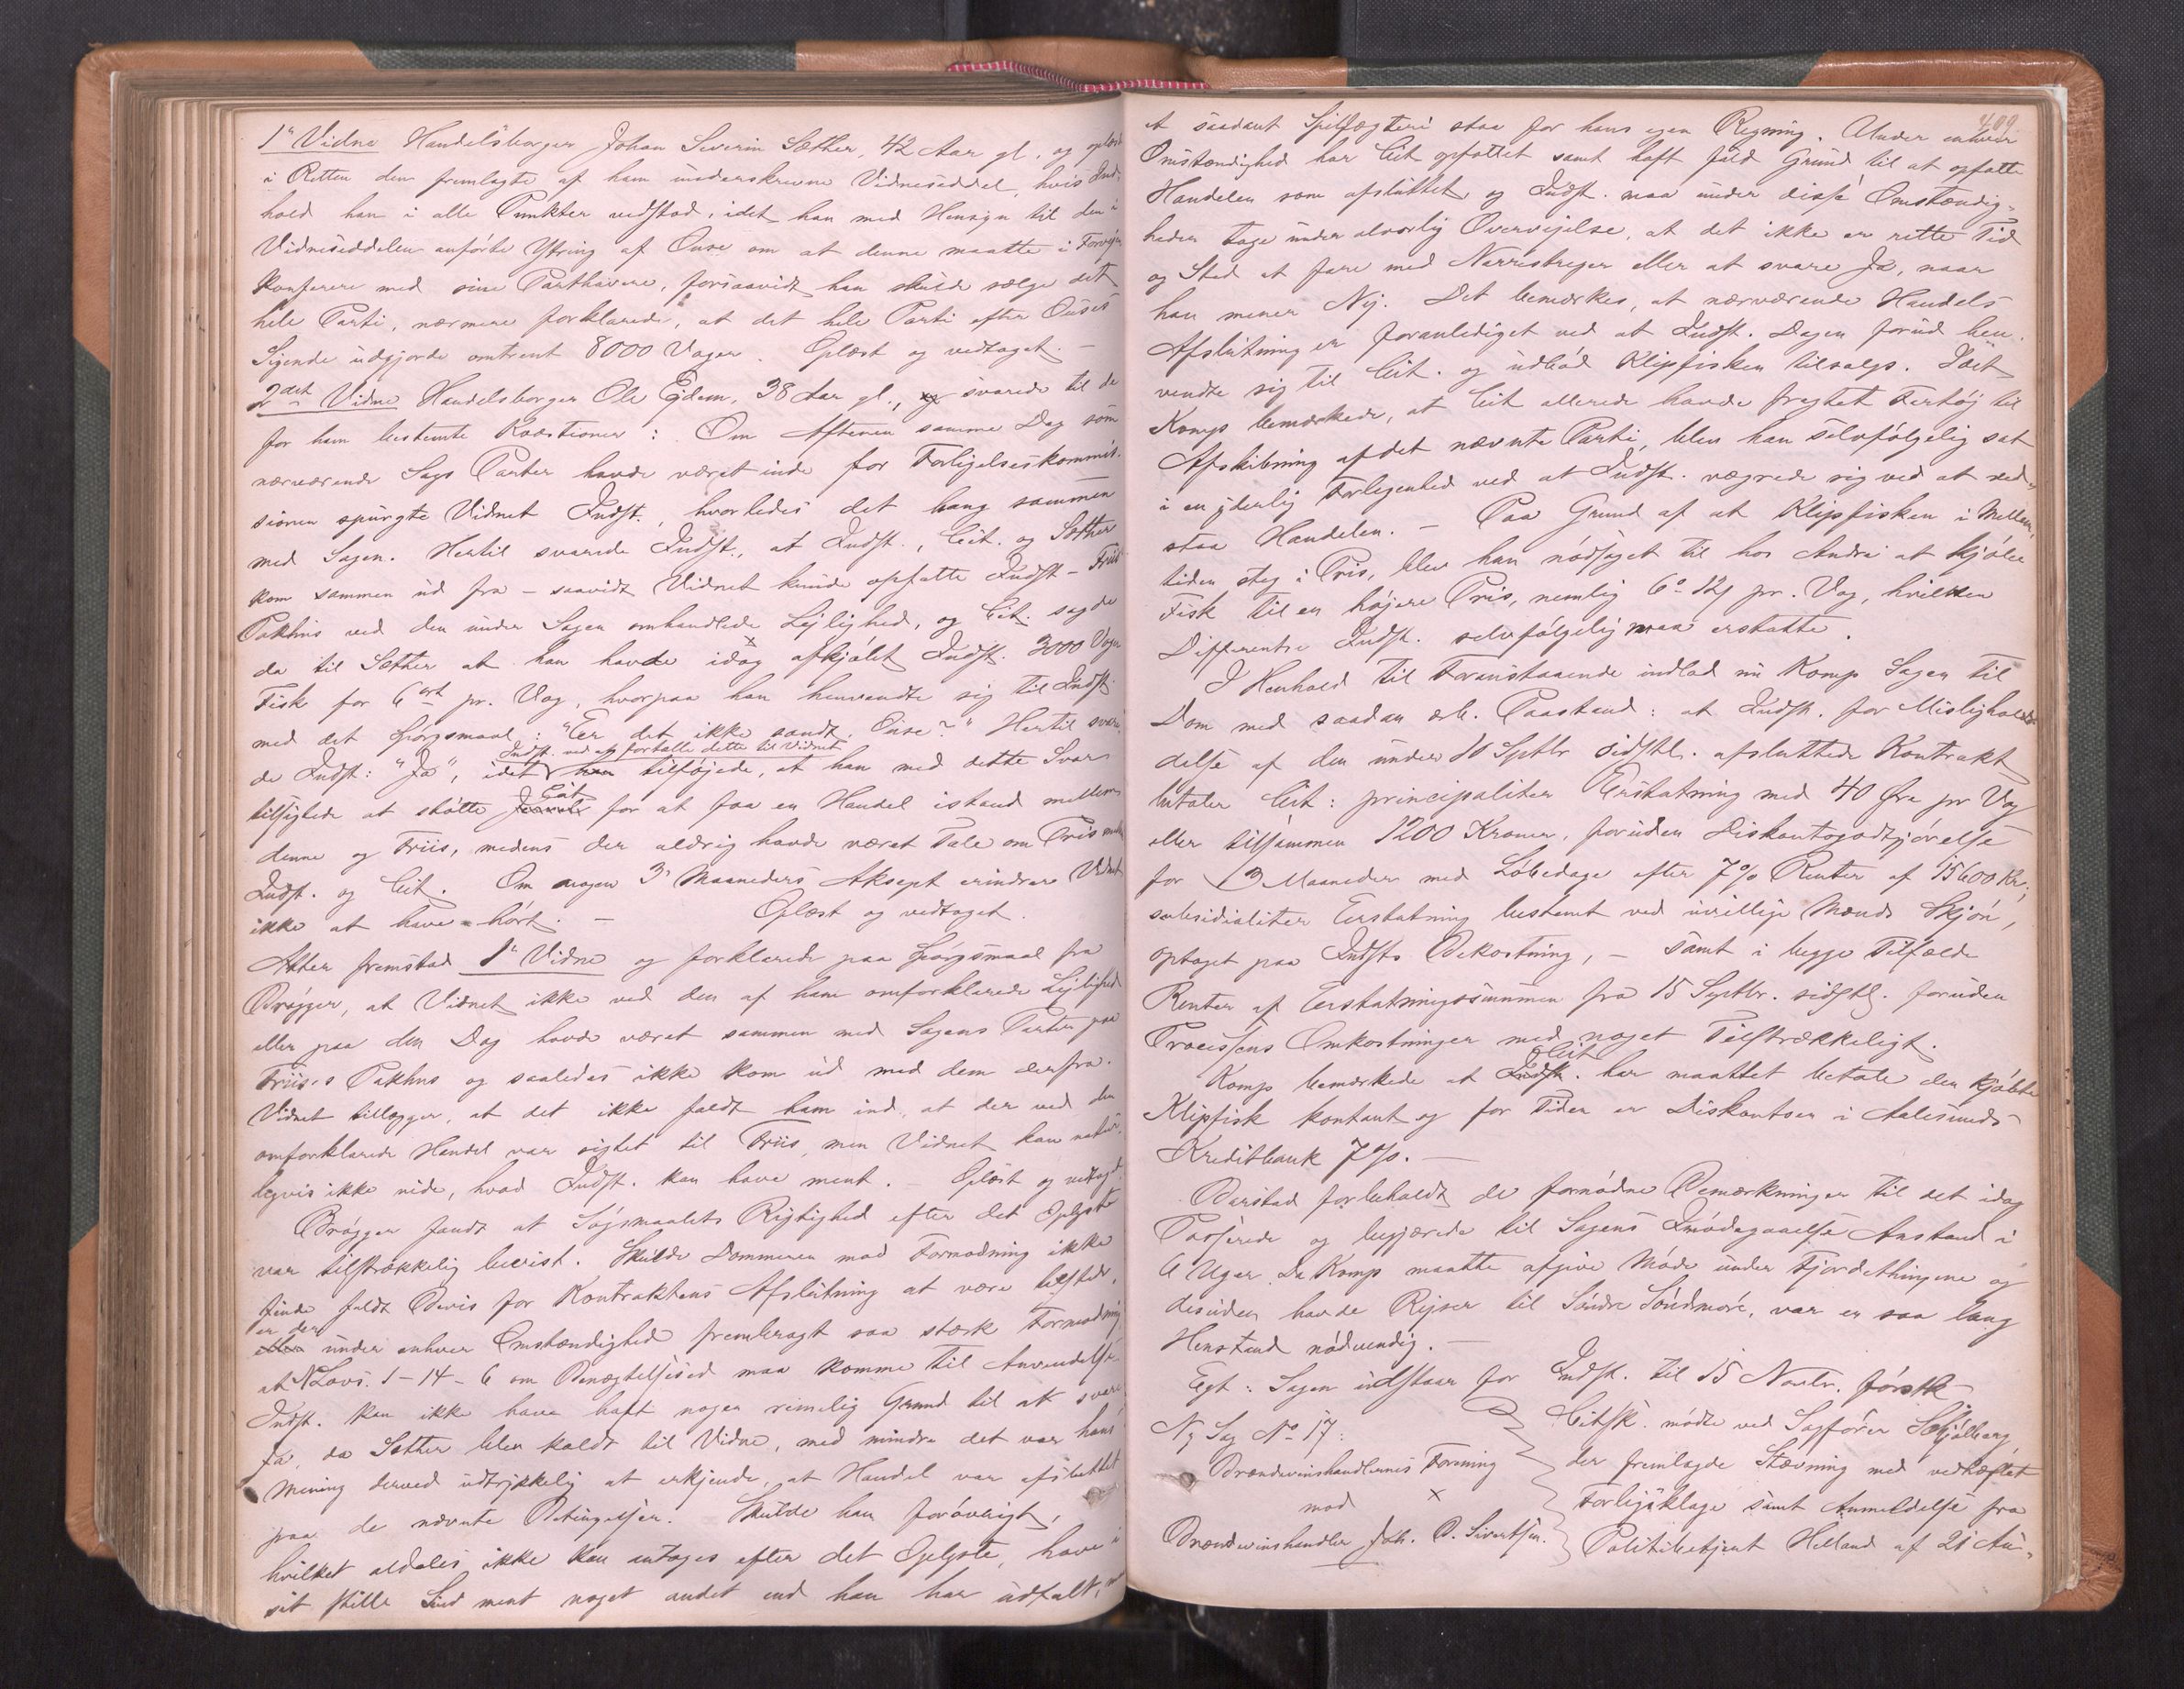 1ste Vidne Handelsborger Johan Severin Sæther, 42 Aar gl., og oplæst
i Retten den fremlagte af ham underskrevne Vidneseddel, hvis Ind-
hold han i alle Punkter vedstod, idet han med Hensyn til den i
Vidneseddelen anførte Ytring af Ouse om at denne maatte i Forvejen
konferere med sine Parthavere, forsaavidt han skulde sælge det
hele Parti, nærmere forklarede, at det hele Parti efter Ouses
Sigende udgjorde omtrent 8000 Vager. Oplæst og vedtaget. —
2det Vidne Handelsborger Ole Eidem, 38 Aar gl., og svarede til de
for ham bestemte Kvæstioner: Om Aftenen samme Dag som
nærværende Sags Parter havde været inde for Forligelseskommis-
sionen spurgte Vidnet Indst., hvorledes det hang sammen
med Sagen. Hertil svarede Indst., at Indst., Cit. og Sæther
kom sammen ud fra – saavidt Vidnet kunde opfatte Indst – Friis
Pakhus ved den under Sagen omhandlede Lejlighed, og Cit. sagde
da til Sæther at han havde idag afkjøbt Indst. 3000 Vager
Fisk for 6 ort pr. Vog, hvorpaa han henvendte sig til Indst.
med det Spørgsmaal: "Er det ikke sandt, Ouse?" Hertil svare-
Indst. ved at fortælle dette til Vidnet
de Indst: "Ja", idet han tilføjede, at han med dette Svar
Cit
tilsigtede at støtte for at faa en Handel istand mellem
denne og Friis, medens der aldrig havde været Tale om Pris mellem
Indst. og Cit. Om nogen 3 Maaneders Aksept erindrer Vidnet
ikke at have hørt. — Oplæst og vedtaget.
Atter fremstod 1ste Vidne og forklarede paa Spørgsmaal fra
Brøgger, at Vidnet ikke ved den af ham omforklarede Lejlighed
eller paa den Dag havde været sammen med Sagens Parter paa
Friis's Pakhus og saaledes ikke kom ud med dem derfra.
Vidnet tillægger, at det ikke faldt ham ind, at der ved den
omforklarede Handel var sigtet til Friis, men Vidnet kan natur-
ligvis ikke vide, hvad Indst. kan have ment. – Oplæst og vedtaget.
Brøgger fandt at Søgsmaalets Rigtighed efter det Oplyste
var tilstrækkelig bevist. Skulde Dommeren mod Formodning ikke
finde fuldt Bevis for Kontraktens Afslutning at være tilstede,
er der
eller under enhver Omstændighed frembragt saa stærk Formodning
at N Lovs. 1-14-6 om Benægtelsesed maa komme til Anvendelse.
Indst. kan ikke have haft nogen rimelig Grund til at svare
Ja, da Sæther blev kaldt til Vidne, med mindre det var hans
Mening derved udtrykkelig at erkjende, at Handel var afsluttet
paa de nævnte Betingelser. Skulde han forøvrigt,
hvilket aldeles ikke kan antages efter det Oplyste, have i
sit stille Sind ment noget andet end han har udtalt,
409
et saadant Spilfægteri staa for hans egen Regning. Under enhver
Omstændighed har Cit opfattet samt haft fuld Grund til at opfatte
Handelen som afsluttet, og Indst. maa under disse Omstændig-
heder tage under alvorlig Overvejelse, at det ikke er rette Tid
og Sted at fare med Narrestreger eller at svare Ja, naar
han mener Nej. Det bemærkes, at nærværende Handels
Afslutning er foranlediget ved at Indst. Dagen forud hen-
vendte sig til Cit. og udbød Klipfisken tilsalgs. Idet
Komp bemærkede, at Cit allerede havde fragtet Fartøj til
Afskibning af det nævnte Parti, blev han selvfølgelig sat
i en yderlig Forlegenhed ved at Indst. vægrede sig ved at ved-
staa Handelen. — Paa Grund af at Klipfisken i Mellem-
tiden steg i Pris, blev han nødsaget til hos Andre at kjøbe
Fisk til en højere Pris, nemlig 6 o 12 s pr. Vog, hvilken
Differentse Indst. selvfølgelig maa erstatte.
I Henhold til Foranstaaende indlod nu Komp Sagen til
Dom med saadan ærb. Paastand: at Indst. for Mislighol-
delse af den under 11 Septbr sidstl. afsluttede Kontrakt
betaler Cit: principaliter Erstatning med 40 Øre pr Vog
eller tilsammen 1200 Kroner, foruden Diskontogodtgjørelse
for 3 Maaneder med Løbedage efter 7% Renter af 15600 Kr;
subsidialiter Erstatning bestemt ved uvillige Mænds Skjøn,
optaget paa Indsts Bekostning, – samt i begge Tilfælde
Renter af Erstatningssummen fra 15 Septbr. sidstl. foruden
Processens Omkostninger med noget Tilstrækkeligt.
Cit
Komp bemærkede at Indst. har maattet betale den kjøbte
Klipfisk kontant og for Tiden er Diskontoen i Aalesunds
Kreditbank 7%. —
Barstad forbeholdt de fornødne Bemærkninger til det idag
Passerede og begjærede til Sagens Imødegaaelse Anstand i
6 Uger. Da Komp maatte afgive Møde under Fjordethingene og
desuden havde Rejser til Søndre Søndmøre, var en saa lang
Henstand nødvendig. —
Egt: Sagen udstaar for Indst. til 15 Novbr. førstk
Ny Sag No 17:
Brændevinshandlernes Forening
mod
Brændevinshandler Joh. B. Sivertsen.
Citsk. mødte ved Sagfører
der fremlagde Stævning med vedhæftet
Forligsklage samt Anmeldelse fra
Politibetjent Helland af 21 Au-